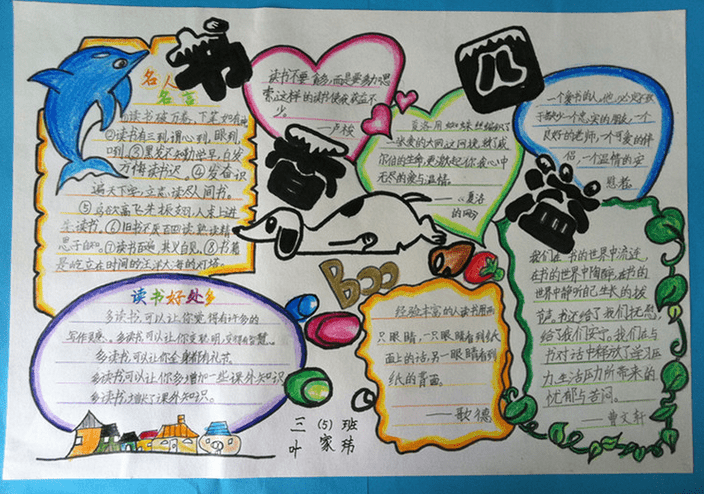 书
香
四
溢
名人
名言
①读书破万卷，下笔如有神
②读书有三到，谓心到，眼到
口到。③黑发不知勤学早，白发
方悔读书迟。④发奋识
遍天下字，立志读尽人间书。
⑤鸟欲高飞先振翅，人求上进
先读书。⑥旧书不厌百回读，熟读精
思子自知。⑦读书百遍，其义自见。⑧书籍
是屹立在时间的汪洋大海的灯塔。
读书不要贪多，而是要多加思
索，这样的读书使我获益不
少。
——卢梭
夏洛用蜘蛛丝编织了
一张爱的大网，这网挽救了威
尔伯的生命，更激起你我心中
无尽的爱与温情。
——《夏洛
的网》
一个爱书的人，他必定不致
于缺少一个忠实的朋友，一个
良好的老师，一个可爱的伴
侣，一个温情的安
慰者。
读书好处多
多读书，可以让你觉得有许多的
写作灵感。多读书，可以让你变聪明，变得有智慧
多读书，可以让你全身都有礼节。
多读书可以让你多增加一些课外知识
多读书，增长了课外知识。
Boo
经验丰富的人读书用两
只眼睛，一只眼睛看到纸
面上的话，另一眼睛看到
纸的背面。
——歌德
我们在书的世界中流连，
在书的世界中陶醉，在书的
世界中静听自己生长的拔
节声，书还给了我们抚慰，
给了我们安宁。我们在与
书对话中释放了学习压
力、生活压力所带来的
忧郁与苦闷。
——曹文轩
三（5）班
叶家玮